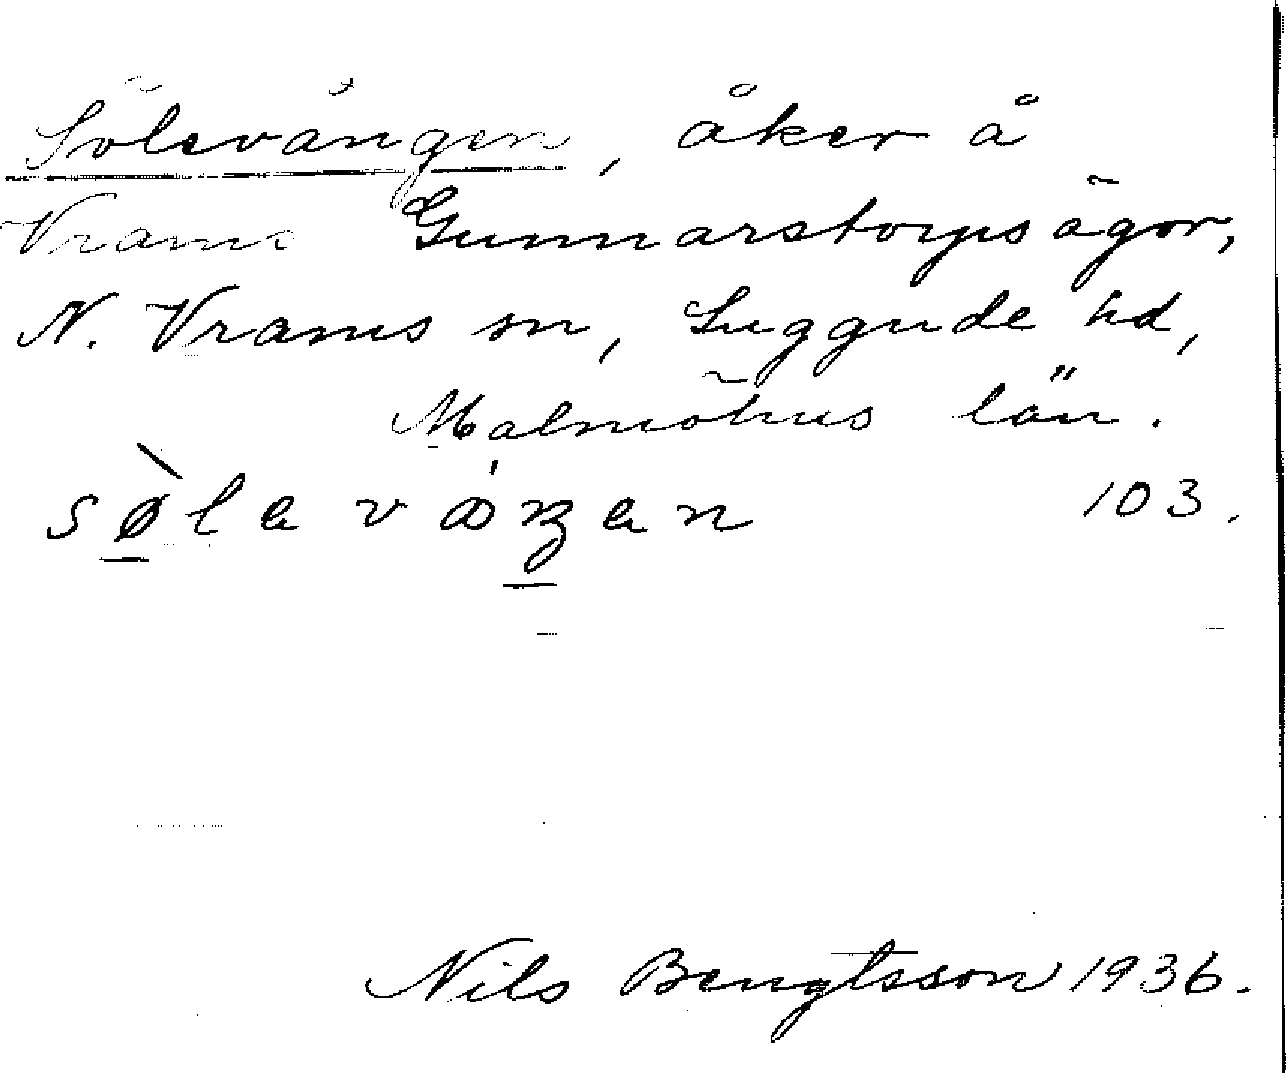 Sölevången, åker å
Vrams Gunnarstorps ägor,
N. Vrams sn, Luggude hd,
Malmöhus län.
sø̀le våŋen 103.
Nils Bengtsson 1936.